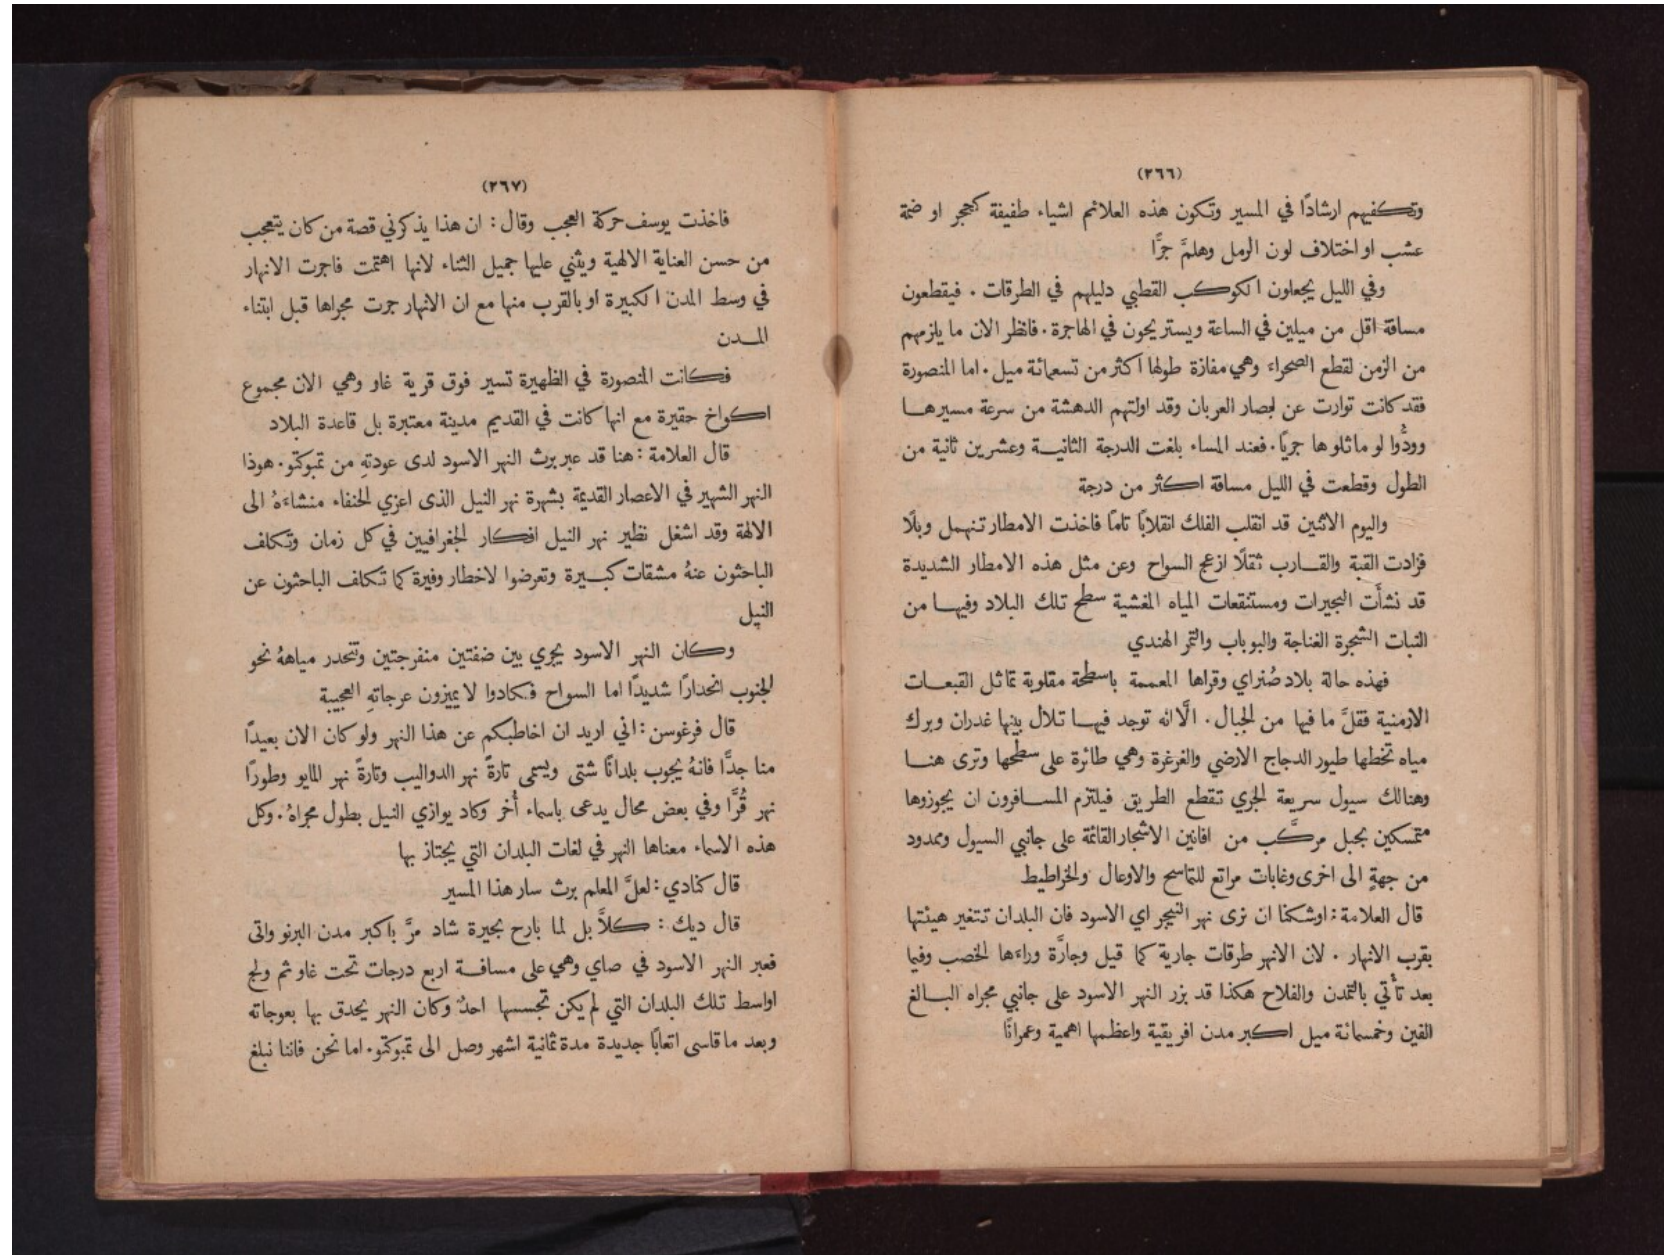 (٢٦٦)
وتكفيهم ارشادًا في المسير وتكون هذه العلائم اشياء طفيفة كحجر او ضمة
عشب او اختلاف لون الرمل وهلمَّ جرًّا
وفي الليل يجعلون الكوكب القطبي دليلهم في الطرقات . فيقطعون
مسافة اقل من ميلين في الساعة ويستريحون في الهاجرة . فانظر الان ما يلزمهم
من الزمن لقطع الصحراء وهي مفازة طولها اكثر من تسعمائة ميل . اما المنصورة
فقد كانت توارت عن ابصار العربان وقد اولتهم الدهشة من سرعة مسيرها
وودُّوا لو ماثلوها جريًا . فعند المساء بلغت الدرجة الثانية وعشرين ثانية من
الطول وقطعت في الليل مسافة اكثر من درجة
واليوم الاثنين قد انقلب الفلك انقلابًا تامًا فاخذت الامطار تنهمل وبلًا
فزادت القبة والقارب ثقلًا ازعج السواح وعن مثل هذه الامطار الشديدة
قد نشأت البحيرات ومستنقعات المياه المغشية سطح تلك البلاد وفيها من
النبات الشجرة الغناجة والبوباب والتمر الهندي
فهذه حالة بلاد صُنراي وقراها المعممة باسطحة مقلوبة تماثل القبعات
الارمنية فقلَّ ما فيها من الجبال . الَّا انه توجد فيها تلال بينها غدران وبرك
مياه تخطها طيور الدجاج الارضي والغرغرة وهي طائرة على سطحها وترى هنا
وهنالك سيول سريعة الجري تقطع الطريق فيلتزم المسافرون ان يجوزوها
متمسكين بحبل مركَّب من افانين الاشجار القائمة على جانبي السيول وممدود
من جهةٍ الى اخرى وغابات مراتع للتماسح والاوعال والخراطيط
قال العلامة : اوشكنا ان نرى نهر النيجر اي الاسود فان البلدان تتغير هيئتها
بقرب الانهار . لان الانهر طرقات جارية كما قيل وجارَّة وراءها الخصب وفيما
بعد تأتي بالتمدن والفلاح هكذا قد بزر النهر الاسود على جانبي مجراه البالغ
الفين وخمسمائة ميل اكبر مدن افريقية واعظمها اهمية وعمرانًا
(٢٦٧)
فاخذت يوسف حركة العجب وقال : ان هذا يذكرني قصة من كان يتعجب
من حسن العناية الالهية ويثني عليها جميل الثناء لانها اهتمت فاجرت الانهار
في وسط المدن الكبيرة او بالقرب منها مع ان الانهار جرت مجراها قبل ابتناء
المدن
فكانت المنصورة في الظهيرة تسير فوق قرية غاو وهي الان مجموع
اكواخ حقيرة مع انها كانت في القديم مدينة معتبرة بل قاعدة البلاد
قال العلامة : هنا قد عبر برث النهر الاسود لدى عودتهِ من تمبوكتو . هوذا
النهر الشهير في الاعصار القديمة بشهرة نهر النيل الذى اعزي الحنفاء منشاءهُ الى
الالهة وقد اشغل نظير نهر النيل افكار الجغرافيين في كل زمان وتكلف
الباحثون عنهُ مشقات كبيرة وتعرضوا لاخطار وفيرة كما تكلف الباحثون عن
النيل
وكان النهر الاسود يجري بين ضفتين منفرجتين وتنحدر مياههُ نحو
الجنوب انحدارًا شديدًا اما السواح فكادوا لا يميزون عرجاتهِ العجيبة
قال فرغوسن : اني اريد ان اخاطبكم عن هذا النهر ولو كان الان بعيدًا
منا جدًّا فانهُ يجوب بلدانًا شتى ويسمى تارةً نهر الدواليب وتارةً نهر المايو وطورًا
نهر قُرَّا وفي بعض محال يدعى باسماء أُخر وكاد يوازي النيل بطول مجراهُ . وكل
هذه الاسماء معناها النهر في لغات البلدان التي يجتاز بها
قال كنادي : لعلَّ المعلم برث سار هذا المسير
قال ديك : كلَّا بل لما بارح بحيرة شاد مرَّ باكبر مدن البرنو واتى
فعبر النهر الاسود في صاي وهي على مسافة اربع درجات تحت غاو ثم ولج
اواسط تلك البلدان التي لم يكن تجسسها احدٌ وكان النهر يحدق بها بعوجاته
وبعد ما قاسى اتعابًا جديدة مدة ثمانية اشهر وصل الى تمبوكتو . اما نحن فاننا نبلغ